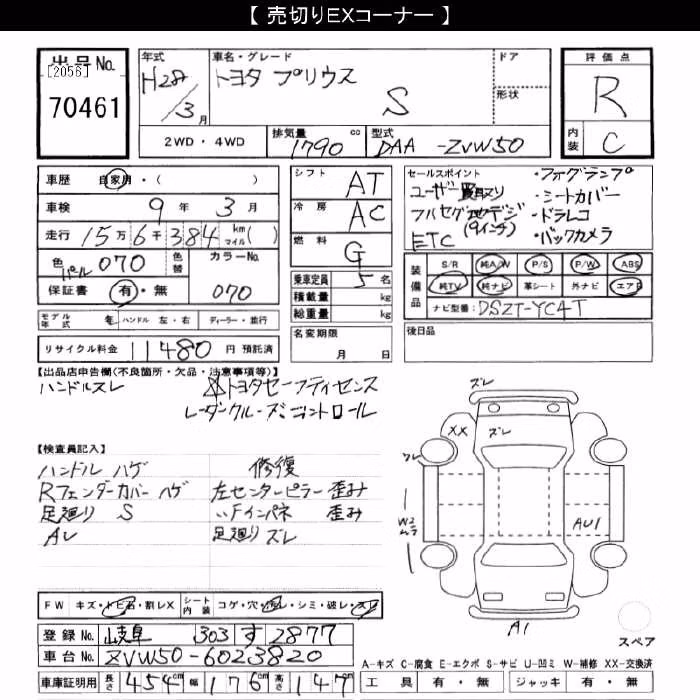 【 売切りEXコーナー 】
出品No.
[2056]
70461
年式
H28/3月
車名・グレード
トヨタ プリウス
S
ドア
形状
評価点
R
内装
C
2WD・4WD
排気量
1790cc
型式
DAA-ZVW50
車歴 自家用・( )
車検 9年 3月
走行 15万6千384km マイル( )
色 パール070
色替
カラーNo.
070
保証書 有・無
モデル年式 年
ハンドル 左・右
ディーラー・並行
リサイクル料金 11480円預託済
シフト AT
冷房 AC
燃料 G
乗車定員 5名
積載量 kg
総重量 kg
名変期限
月 日
セールスポイント
・フォグランプ
ユーザー買取り
・シートカバー
フルセグ地デジ(9インチ)
・ドラレコ
ETC
・バックカメラ
装備品
S/R 純A/W P/S P/W ABS
純TV 純ナビ 革シート 外ナビ エアB
ナビ型番: DSZT-YC4T
後日品
【出品店申告欄(不良箇所・欠品・注意事項等)】
ハンドルスレ
☆トヨタセーフティセンス
レーダークルーズコントロール
【検査員記入】
ハンドル ハゲ
Rフェンダーカバー ハゲ
足廻り S
AU
修復
左センターピラー歪み
〃Fインパネ 歪み
足廻り ズレ
ズレ
XX
ズレ
W2
ムラ
AU1
A1
スペア
FW キズ・トビ石・割レX
シート内装 コゲ・穴・切レ・シミ・破レ・スレ
登録No. 岐阜 303 す 2877
車台No. ZVW50-6023820
車庫証明用 長さ454cm 幅176cm 高さ147cm
A-キズ C-腐食 E-エクボ S-サビ U-凹ミ W-補修 XX-交換済
工具 有・無 ジャッキ 有・無